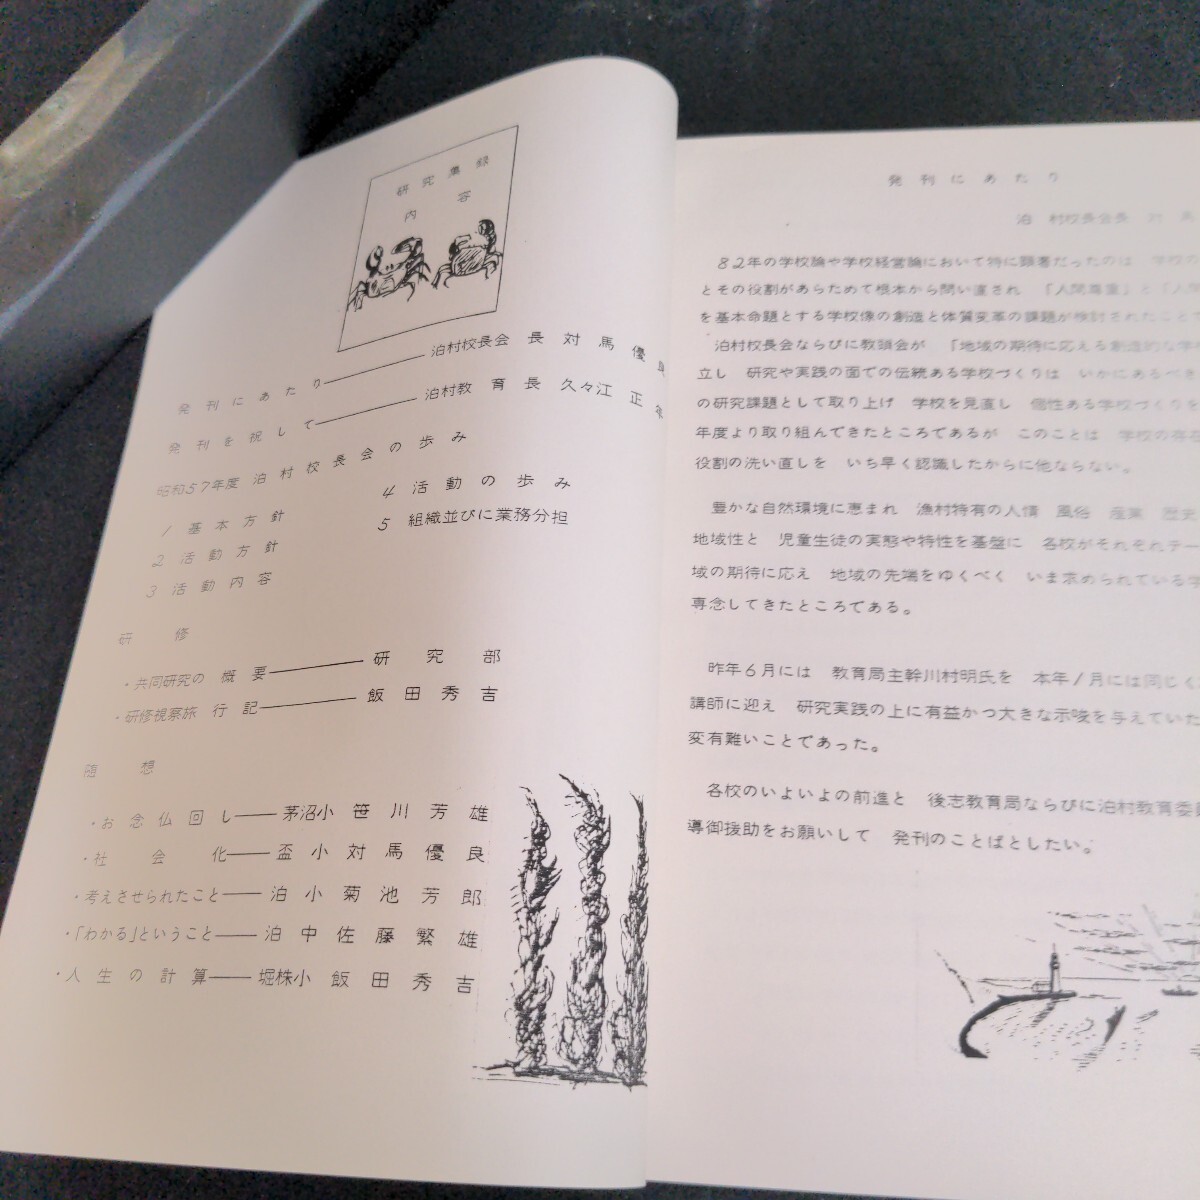 研究集録
内容
発刊にあたり 泊村校長会長 対馬優良
発刊を祝して 泊村教育長 久々江正
昭和57年度 泊村校長会の歩み
1 基本方針
2 活動方針
3 活動内容
4 活動の歩み
5 組織並びに業務分担
研修
・共同研究の概要 研究部
・研修視察旅行記 飯田秀吉
随想
・お念仏回し 茅沼小 笹川芳雄
・社会化 盃小 対馬優良
・考えさせられたこと 泊小 菊池芳郎
・「わかる」ということ 泊中 佐藤繁雄
・人生の計算 堀株小 飯田秀吉
発刊にあたり
泊村校長会長 対馬
82年の学校論や学校経営論において特に顕著だったのは 学校の
とその役割があらためて根本から問い直され 「人間尊重」と「人間
を基本命題とする学校像の創造と体質変革の課題が検討されたことで
泊村校長会ならびに教頭会が 「地域の期待に応える創造的な学校
立し 研究や実践の面での伝統ある学校づくりは いかにあるべき
の研究課題として取り上げ 学校を見直し 個性ある学校づくりを
年度より取り組んできたところであるが このことは 学校の存在
役割の洗い直しを いち早く認識したからに他ならない。
豊かな自然環境に恵まれ 漁村特有の人情 風俗 産業 歴史
地域性と 児童生徒の実態や特性を基盤に 各校がそれぞれテー
域の期待に応え 地域の先端をゆくべく いま求められている学
専念してきたところである。
昨年6月には 教育局主幹川村明氏を 本年1月には同じく
講師に迎え 研究実践の上に有益かつ大きな示唆を与えていた
変有難いことであった。
各校のいよいよの前進と 後志教育局ならびに泊村教育委員
導御援助をお願いして 発刊のことばとしたい。